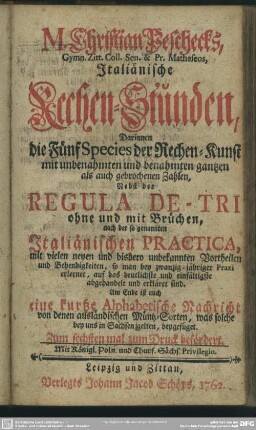 M. Christian Peschecks,
Gymn. Zitt. Coll. Sen. & Pr. Matheseos,
Italiänische
Rechen-Stunden,
Darinnen
die Fünf Species der Rechen-Kunst
mit unbenahmten und benahmten gantzen
als auch gebrochenen Zahlen,
Nebst der
REGULA DE-TRI
ohne und mit Brüchen,
nach der so genannten
Italiänischen PRACTICA,
mit vielen neuen und bishero unbekannten Vortheilen
und Behendigkeiten, so man bey zwanzig-jähriger Praxi
erlernet, auf das deutlichste und einfältigste
abgehandelt und erkläret sind.
Am Ende ist auch
eine kurtze Alphabetische Nachricht
von denen ausländischen Müntz-Sorten, was solche
bey uns in Sachsen gelten, beygefüget.
Zum sechsten mal zum Druck befördert.
Mit Königl. Poln. und Churf. Sächs. Privilegio.
Leipzig und Zittau,
Verlegts Johann Jacob Schöps, 1762.